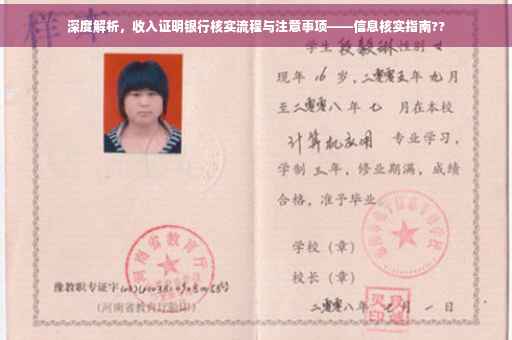 深度解析，收入证明银行核实流程与注意事项——信息核实指南??
样本
学生段毅琳性别女
现年16岁，二零零五年九月
至二零零八年七月在本校
计算机应用 专业学习，
学制三年，修业期满，成绩
合格，准予毕业
学校（章）
校长（章）
二零零八年七月一日
河南省教育厅
豫教职专证字
（河南省教育厅验印）